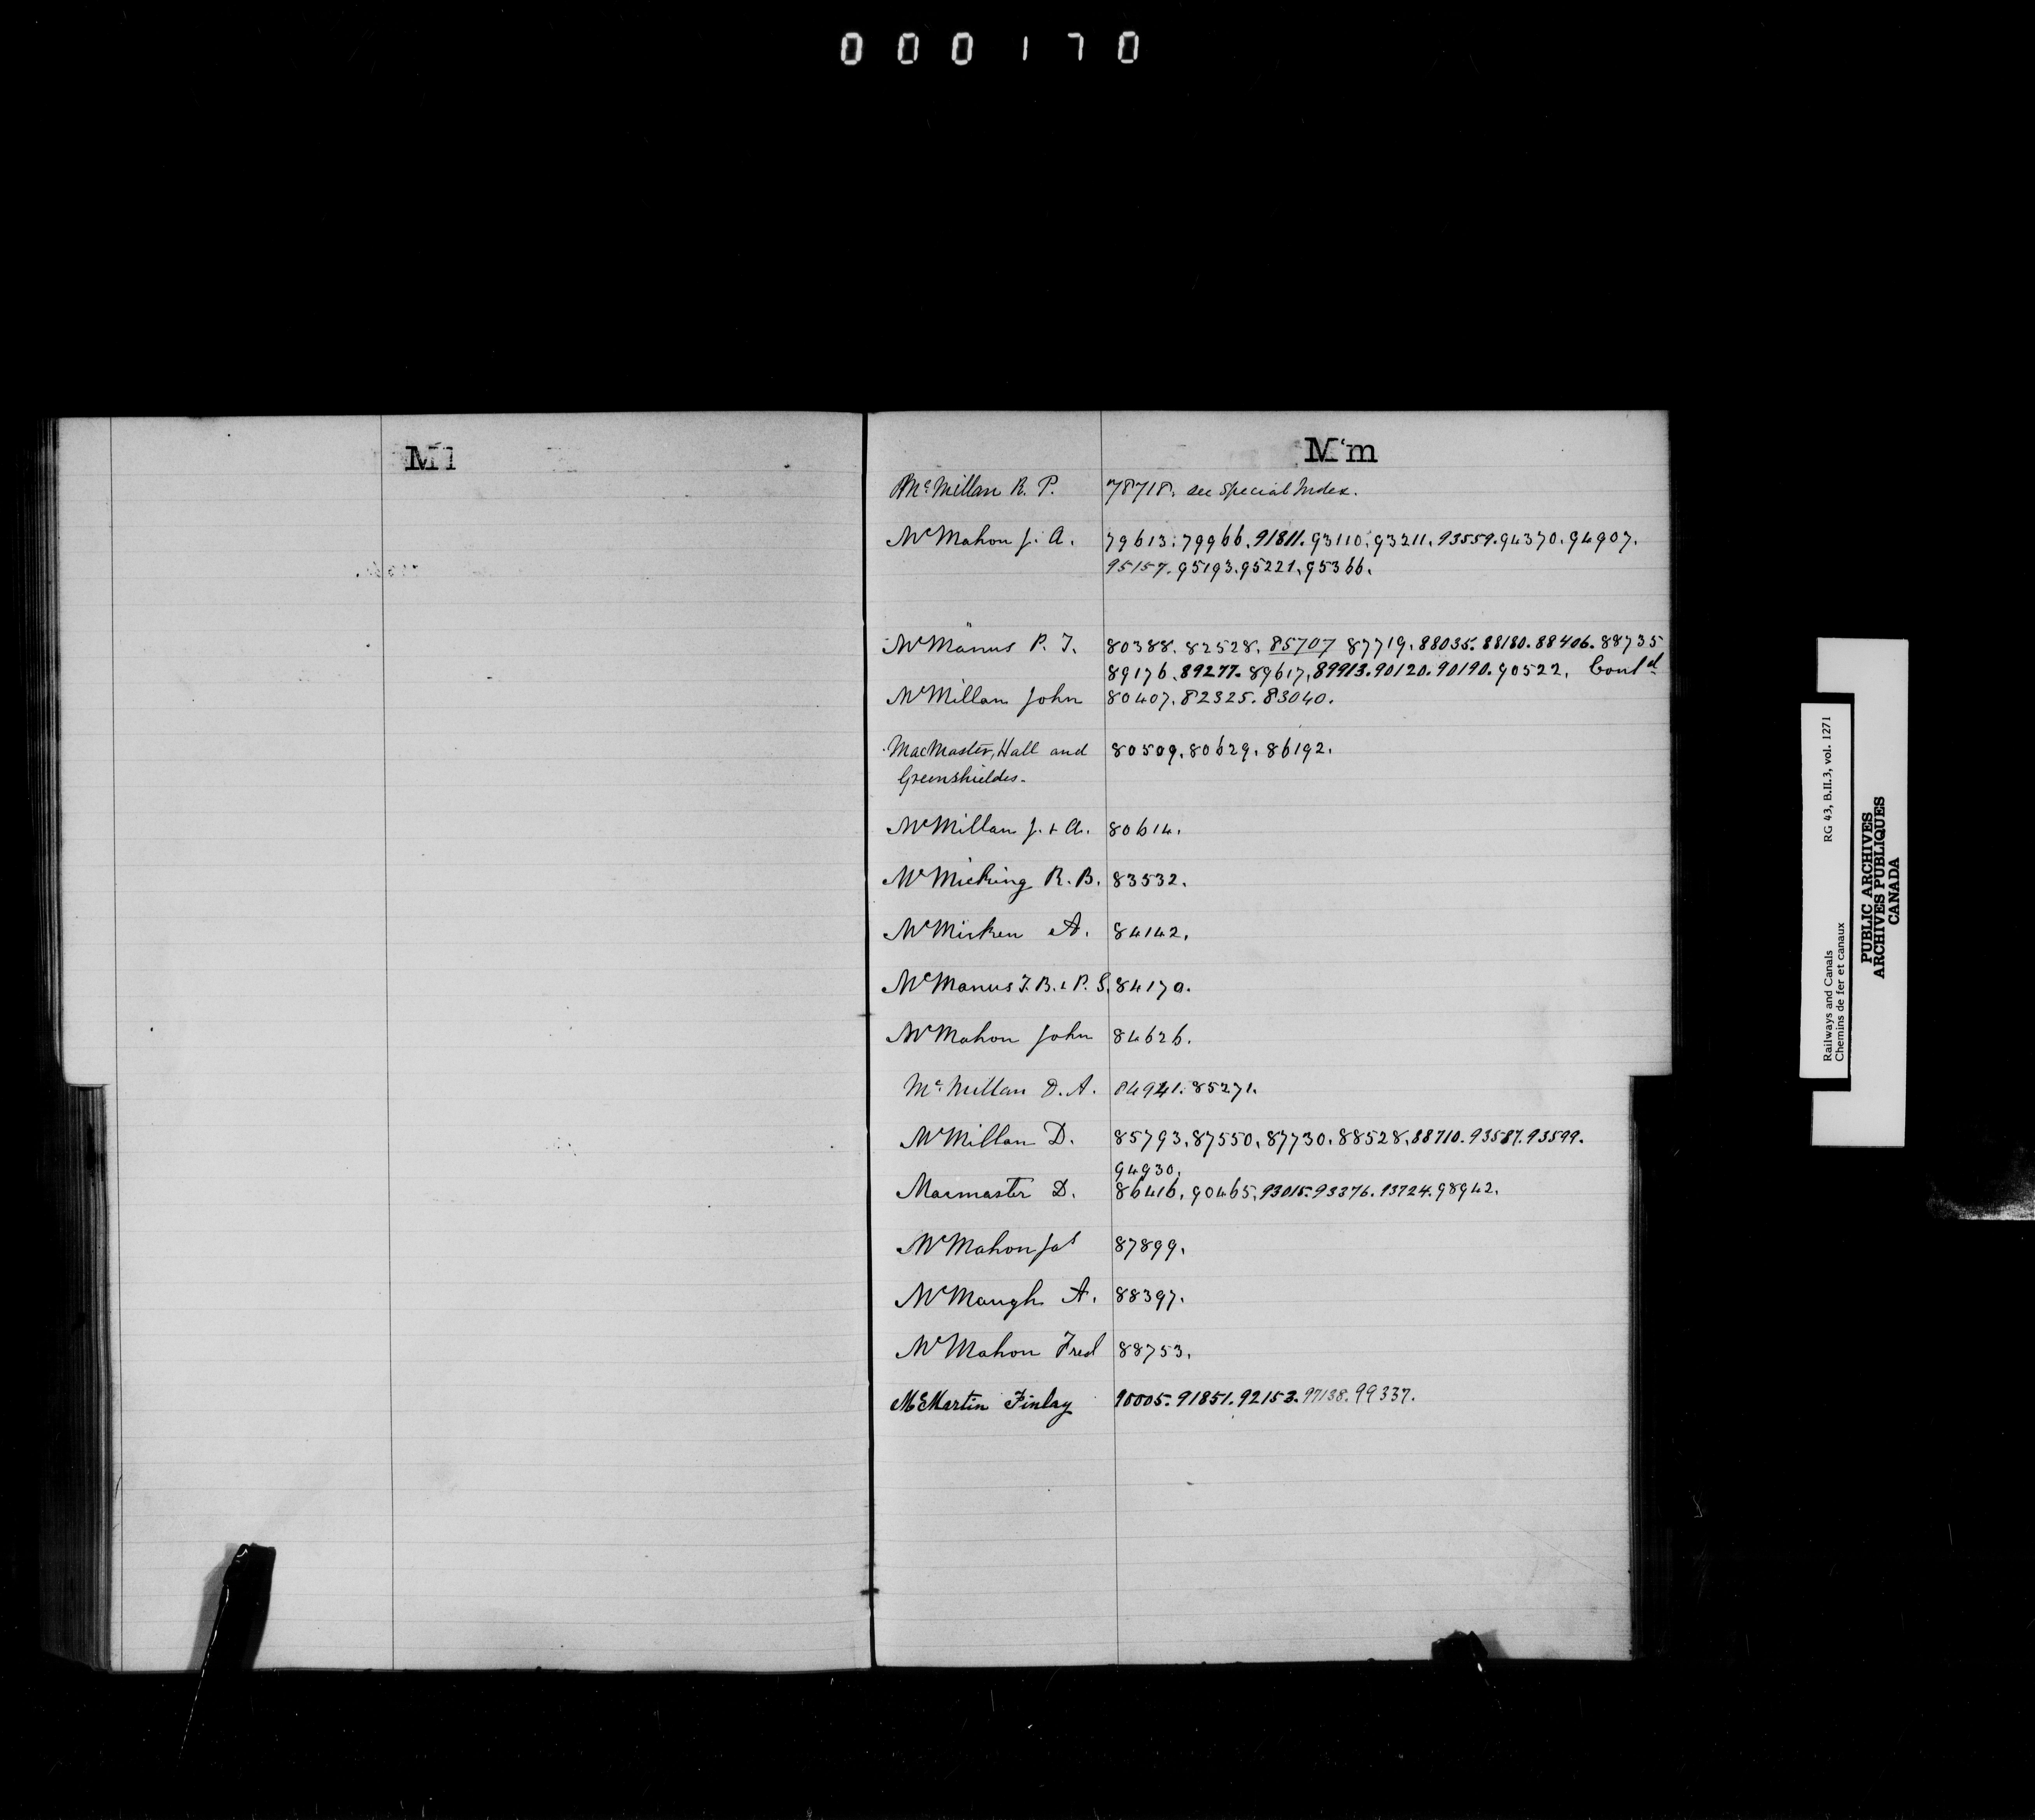 000170
Ml
M'm
McMillan R. P. 78718. see Special Index.
McMahon J. A. 79613. 79966. 91811. 93110. 93211. 93559. 94370. 94907.
95157. 95193. 95221. 95366.
McManus P. T. 80388. 82528. 85707 87719. 88035. 88180. 88406. 88735
89176. 89277. 89617. 89913. 90120. 90190. 90522. Contd
McMillan John 80407. 82325. 83040.
MacMaster, Hall and 80509. 80629. 86192.
Greenshieldes.
McMillan J. & A. 80614.
McMicking R. B. 83532.
McMicken A. 84142.
McManus T. B. & P. S. 84170.
McMahon John 84626.
McMillan D. A. 84941. 85271.
McMillan D. 85793. 87550. 87730. 88528. 88710. 93587. 93599.
94930.
Macmaster D. 86416. 90465. 93015. 93376. 93724. 98942.
McMahon Jas 87899.
McMaugh A. 88397.
McMahon Fred 88753.
McMartin Finlay 90005. 91851. 92153. 97138. 99337.
Railways and Canals RG 43, B.II.3, vol. 1271
Chemins de fer et canaux
PUBLIC ARCHIVES
ARCHIVES PUBLIQUES
CANADA